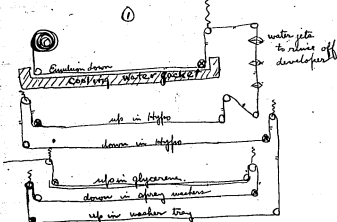 ①
water jets
to rinse off
developer
Emulsion down
cooling water jacket
up in Hypo
down in Hypo
up in glycerene
down in spray washers
up in washer tray